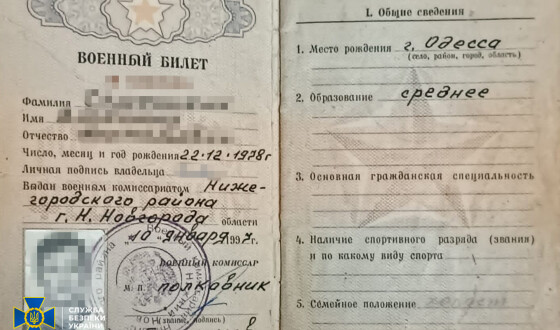 ВОЕННЫЙ БИЛЕТ
Фамилия
Имя
Отчество
Число, месяц и год рождения 22.12.1978г
Личная подпись владельца
Выдан военным комиссариатом Ниже-
городского района
г. Н. Новгорода области
10 января 199
ВОЕННЫЙ КОМИССАР
М. П. полковник
(звание, подпись)
СЛУЖБА
БЕЗПЕКИ
УКРАЇНИ
I. Общие сведения
1. Место рождения г. Одесса
(село, район, город, область)
2. Образование среднее
3. Основная гражданская специальность
4. Наличие спортивного разряда (звания)
и по какому виду спорта
5. Семейное положение холост